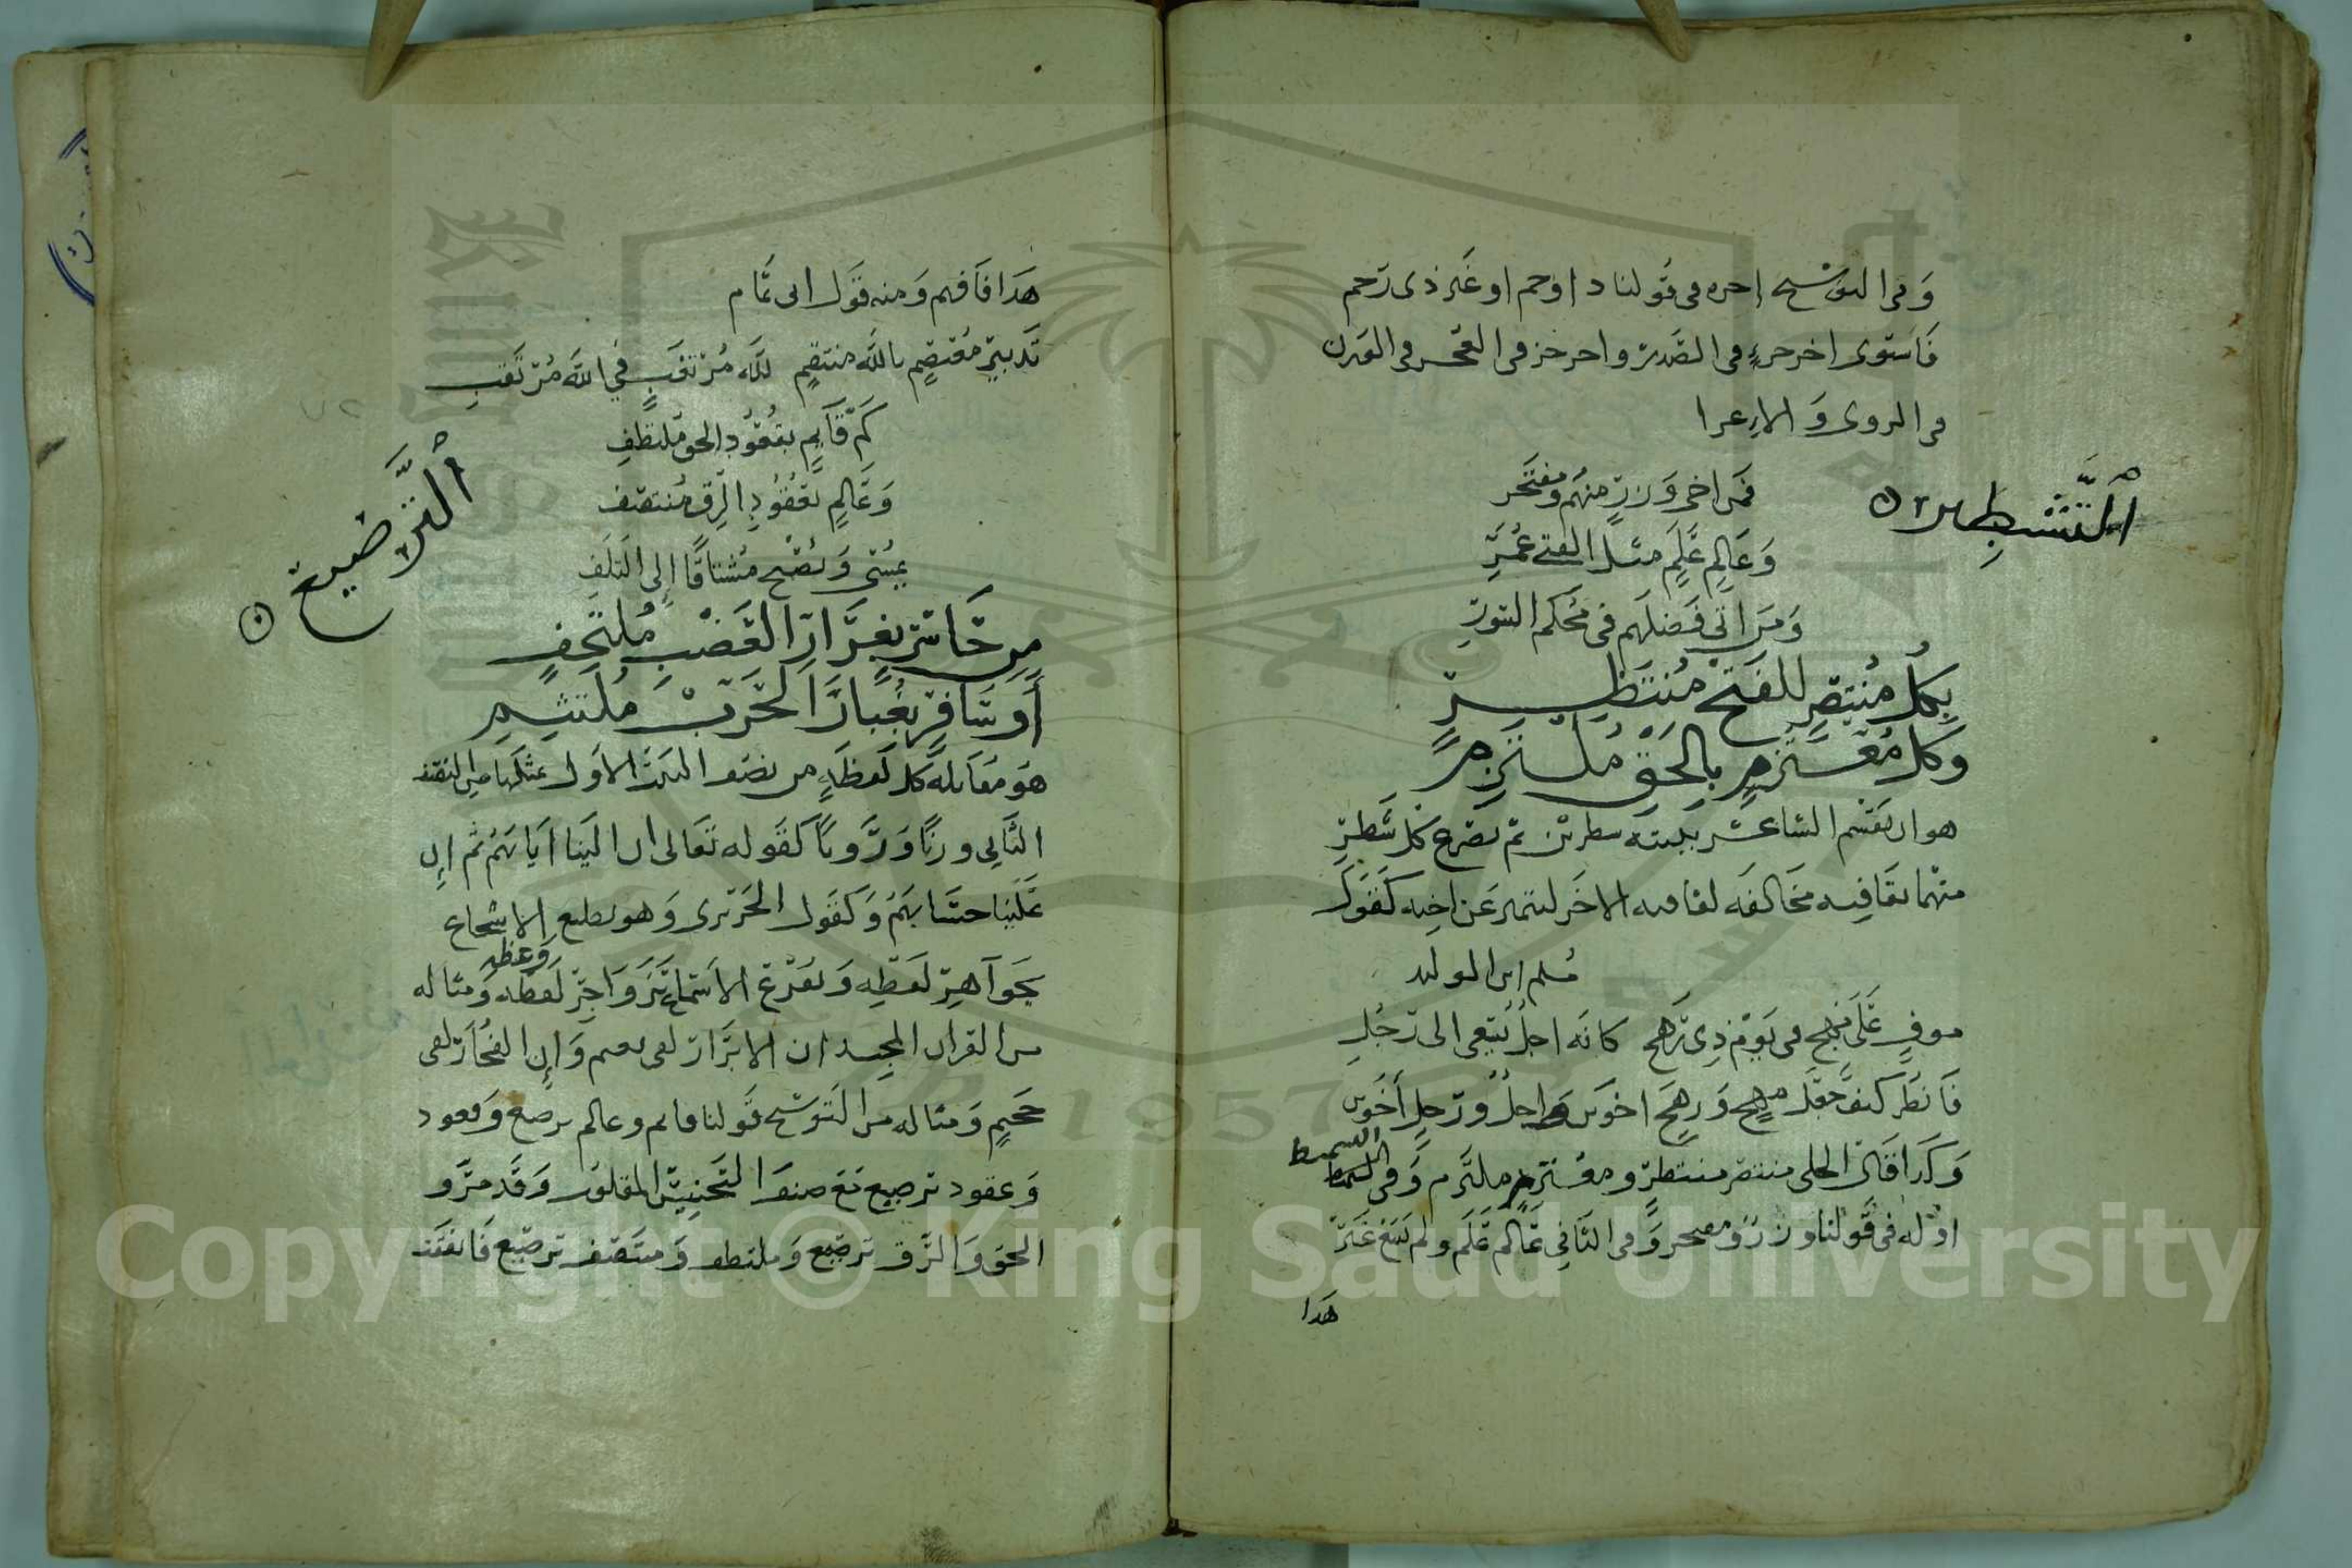 وفي التوشيح اخره في قولنا د اوحم او غير ذي رحم
فاستوى اخر جزء في الصدر واخر جزء في العجز في الوزن
في الروي والاعرا
التشطير
فمن اخي وزر منهم ومفتخر
وعالم علم مثل الفتى عمر
ومن اتى فضلهم في محكم السور
بكل منتصر للفتح منتظر
وكل معتزم بالحق ملتزم
هو ان يقسم الشاعر بيته شطرين ثم يصرع كل شطر
منهما بقافيه مخالفه لقافيه الاخر ليتميز عن اخيه كقول
مسلم ابن الوليد
موف على مهج في يوم ذي رهج كانه اجل يسعى الى رجل
فانظر كيف جعل مهج ورهج اخوين واجل ورجل اخوين
وكذا قال الحلي منتصر منتظر ومعتزم ملتزم وفي التسميط
التسميط
اوله في قولنا وزر ومفتخر وفي الثاني عالم علم ولم يسع غير
هذا
هذا فافهم ومنه قول ابي تمام
تدبير معتصم بالله منتقم لله مرتقب في الله مرتغب
الترصيع
كم قايم بقعود الحق ملتطف
وعالم بعقود الرق منتصف
يمسي ويصبح مشتاقا الى التلف
من حاسر بغرار العضب ملتحف
او سافر بغبار الحرب ملتثم
هو مقابلة كل لفظة من نصف البيت الاول بمثلها من النصف
الثاني وزنا ورويا كقوله تعالى ان الينا ايابهم ثم ان
علينا حسابهم وكقول الحريري وهو يطبع الاسجاع
بجواهر لفظه ويقرع الاسماع بزواجر لفظه ومثاله
وعظه
من القران المجيد ان الابرار لفي نعيم وان الفجار لفي
جحيم ومثاله من التوشيح قولنا قايم وعالم ترصيع وقعود
وعقود ترصيع مع صنف التجنيس المقلوب وقد مر و
الحق والرق ترصيع وملتطف ومنتصف ترصيع فانفتت